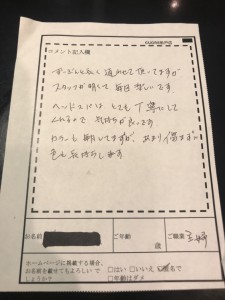 コメント記入欄
ずーぶんと長く通わせて頂いてますが
スタッフが明るくて毎回楽しいです
ヘッドスパはとても丁寧にして
くれるので気持ちが良いです
カラーも願いしてますが、あまり傷まずに
色も気持ちします
お名前
ご年齢
歳
ご職業 主婦
ホームページに掲載する場合、
お名前を載せてもよろしいで
しょうか？
□はい □いいえ 匿名で
□年齢はダメ